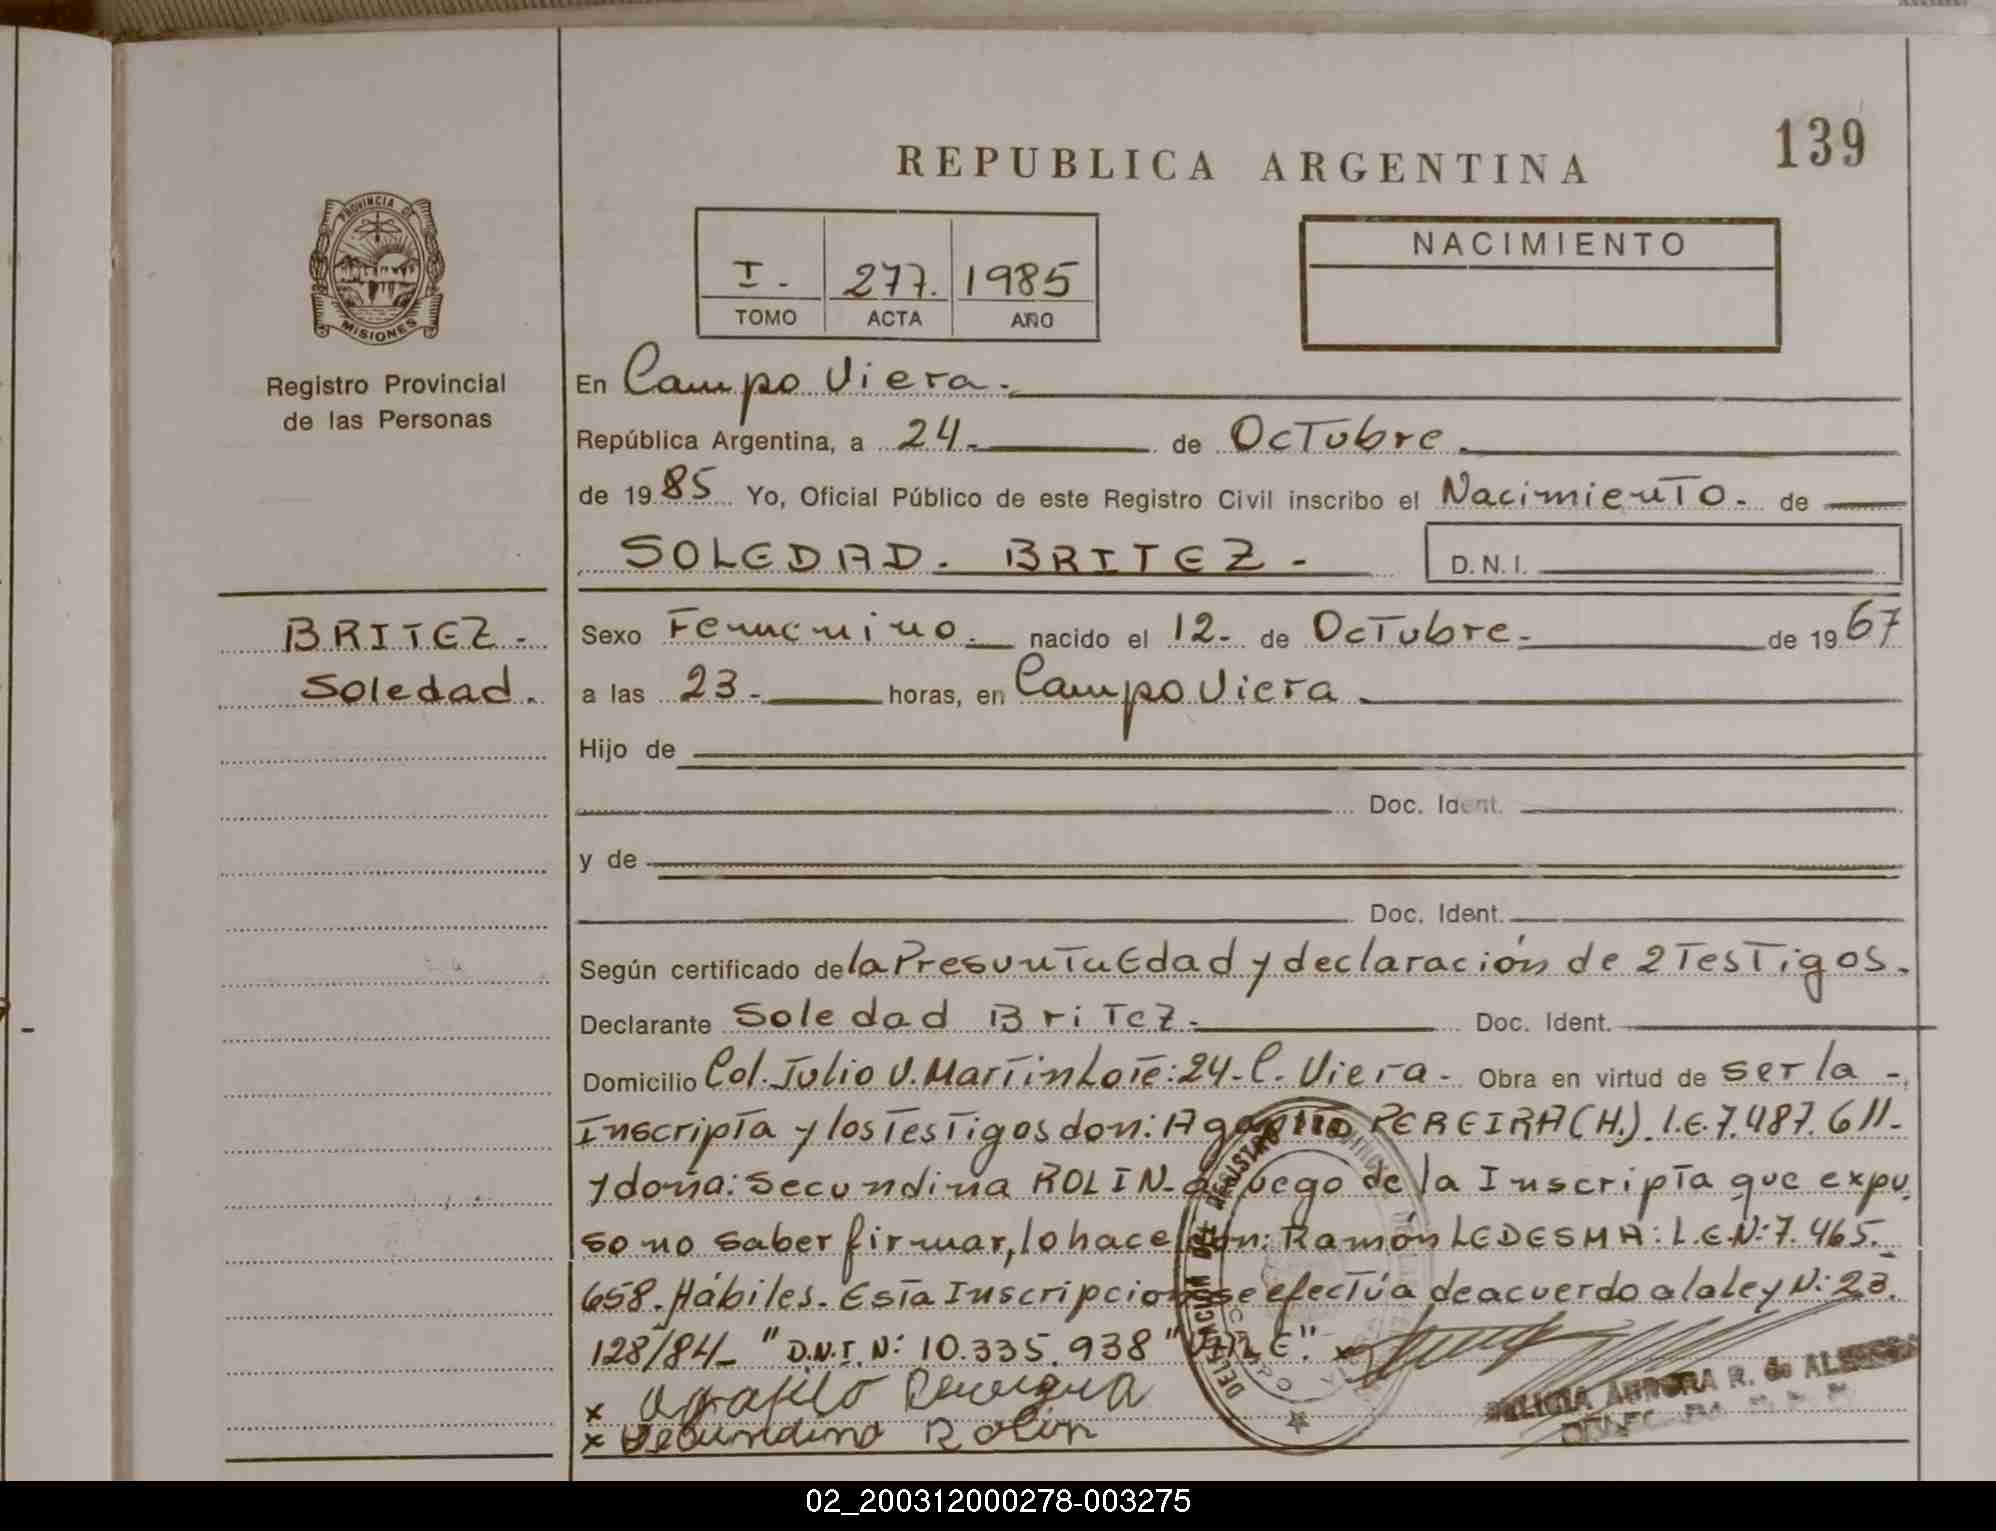 139
REPUBLICA ARGENTINA
PROVINCIA DE
MISIONES
Registro Provincial
de las Personas
I. 277. 1985
TOMO ACTA AÑO
NACIMIENTO
En Campo Viera.
República Argentina, a 24. de Octubre.
de 1985 Yo, Oficial Público de este Registro Civil inscribo el Nacimiento. de
SOLEDAD. BRITEZ - D.N.I.
BRITEZ -
Soledad.
Sexo Femenino. nacido el 12- de Octubre. de 1967
a las 23- horas, en Campo Viera
Hijo de
Doc. Ident.
y de
Doc. Ident.
Según certificado de la Presunta Edad y declaración de 2 Testigos.
Declarante Soledad Britez- Doc. Ident.
Domicilio Col. Julio U. Martin Lote: 24- C. Viera- Obra en virtud de ser la -
Inscripta y los Testigos don: Agapito PEREIRA (H.). L.E. 7.487.611-
y doña: Secundina ROLIN- a ruego de la Inscripta que expu
so no saber firmar, lo hace don: Ramón LEDESMA: L.E.N: 7.465.
658. Hábiles. Esta Inscripcion se efectúa de acuerdo a la ley N: 23.
128/84_ "D.N.I. N: 10.335.938 "VALE".
x
x Rolin
AURORA R. de
02_200312000278-003275